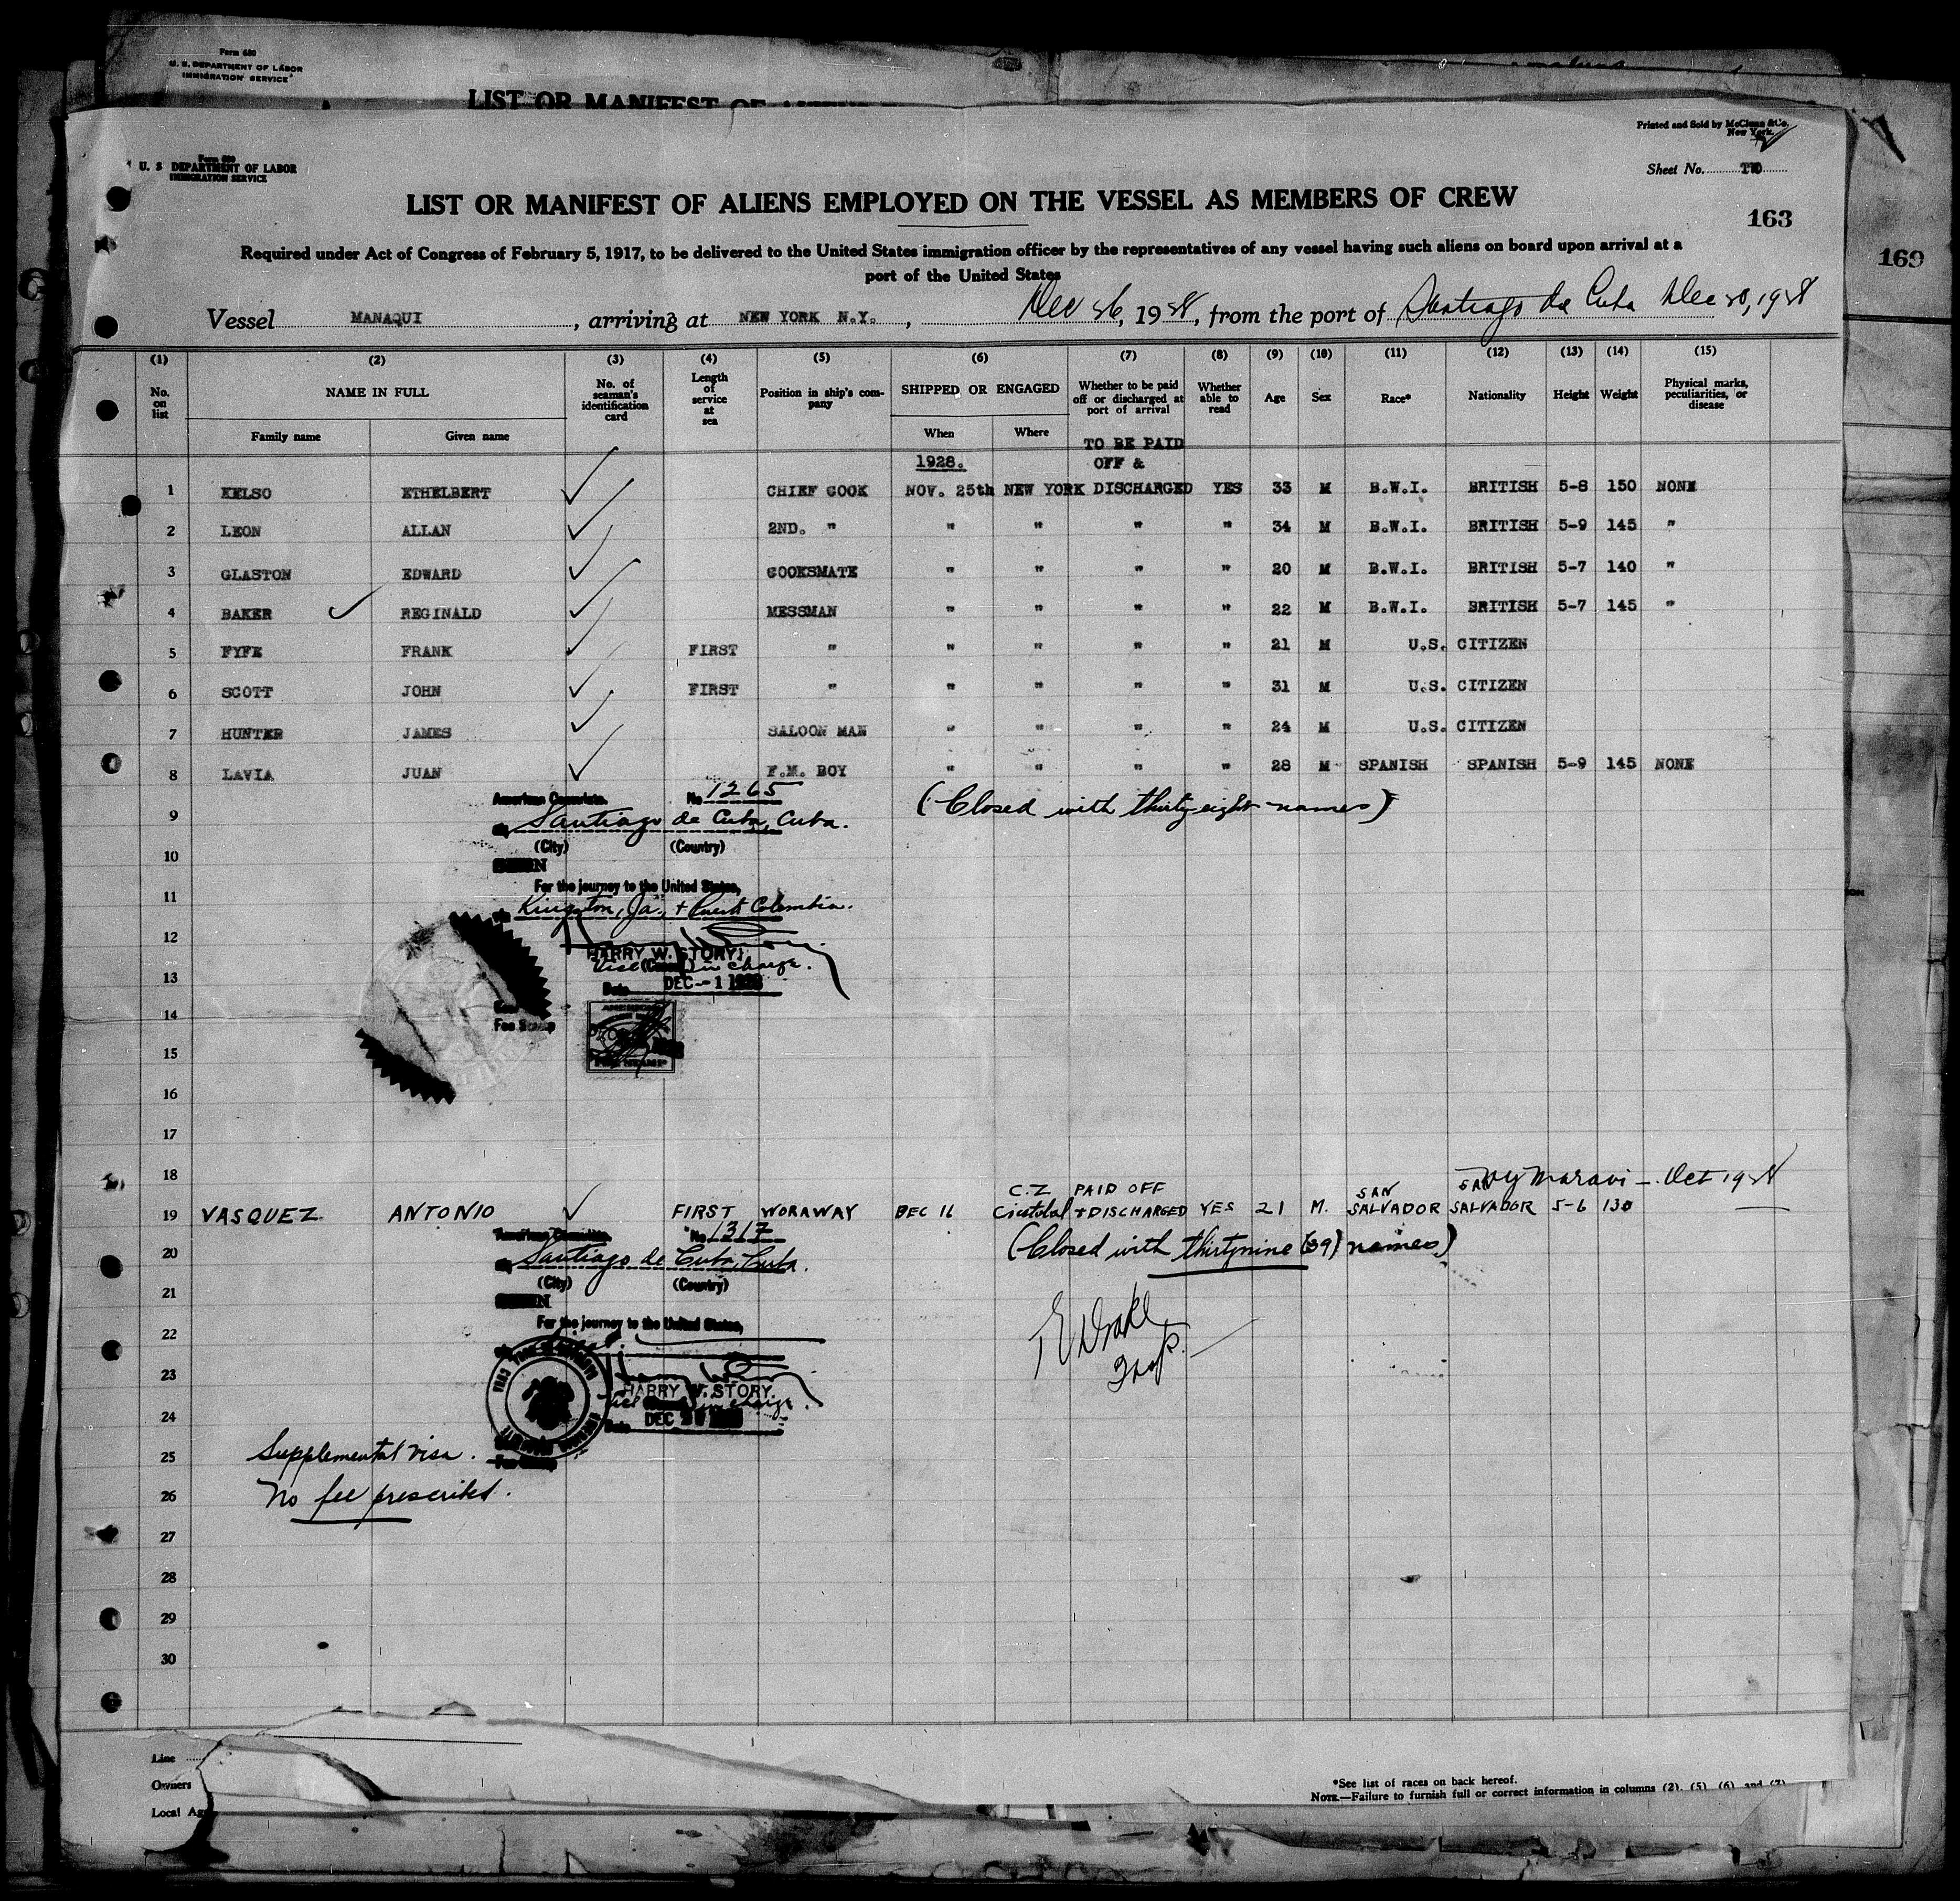 Form 680
U. S. DEPARTMENT OF LABOR
IMMIGRATION SERVICE
LIST OR MANIFEST OF
Printed and Sold by McClunn & Co.
New York.
Form 680
U. S DEPARTMENT OF LABOR
IMMIGRATION SERVICE
Sheet No. TWO
LIST OR MANIFEST OF ALIENS EMPLOYED ON THE VESSEL AS MEMBERS OF CREW
163
169
Required under Act of Congress of February 5, 1917, to be delivered to the United States immigration officer by the representatives of any vessel having such aliens on board upon arrival at a
port of the United States
Vessel MANAQUI, arriving at NEW YORK N.Y., Dec 26, 1928, from the port of Santiago de Cuba Dec 20, 1928
(1) (2) (3) (4) (5) (6) (7) (8) (9) (10) (11) (12) (13) (14) (15)
No. on list NAME IN FULL No. of seaman's identification card Length of service at sea Position in ship's company SHIPPED OR ENGAGED Whether to be paid off or discharged at port of arrival Whether able to read Age Sex Race* Nationality Height Weight Physical marks, peculiarities, or disease
Family name Given name When Where
1928. TO BE PAID OFF &
1 KELSO ETHELBERT CHIEF COOK NOV. 25th NEW YORK DISCHARGED YES 33 M B.W.I. BRITISH 5-8 150 NONE
2 LEON ALLAN 2ND. " " " " " 34 M B.W.I. BRITISH 5-9 145 "
3 GLASTON EDWARD COOKSMATE " " " " 20 M B.W.I. BRITISH 5-7 140 "
4 BAKER REGINALD MESSMAN " " " " 22 M B.W.I. BRITISH 5-7 145 "
5 FYFE FRANK FIRST " " " " " 21 M U.S. CITIZEN
6 SCOTT JOHN FIRST " " " " " 31 M U.S. CITIZEN
7 HUNTER JAMES SALOON MAN " " " " 24 M U.S. CITIZEN
8 LAVIA JUAN F.M. BOY " " " " 28 M SPANISH SPANISH 5-9 145 NONE
American Consulate. No 1265
9 Santiago de Cuba, Cuba. (Closed with thirty eight names)
(City) (Country)
10 SEEN
For the journey to the United States,
11 via Kingston, Ja., + Puerto Colombia.
12
HARRY W. STORY,
Vice Consul in charge.
13 Date DEC -1 1928
14 Fee Stamp
15
16
17
18 NY Maravi - Oct 1928
C.Z PAID OFF SAN SAN
19 VASQUEZ ANTONIO FIRST WORAWAY DEC 16 Cristobal + DISCHARGED YES 21 M. SALVADOR SALVADOR 5-6 130
American Consulate. No 1317
20 Santiago de Cuba, Cuba. (Closed with thirtynine (39) names)
(City) (Country)
21 SEEN
22 For the journey to the United States,
23 HARRY W. STORY.
Vice Consul in charge.
24 Date DEC
E Drake
Insp.
25 Supplemental visa.
Fee Stamp
26 No fee prescribed.
27
28
29
30
Line
Owners
Local Ag
*See list of races on back hereof.
NOTE.—Failure to furnish full or correct information in columns (2), (5), (6) and (7)